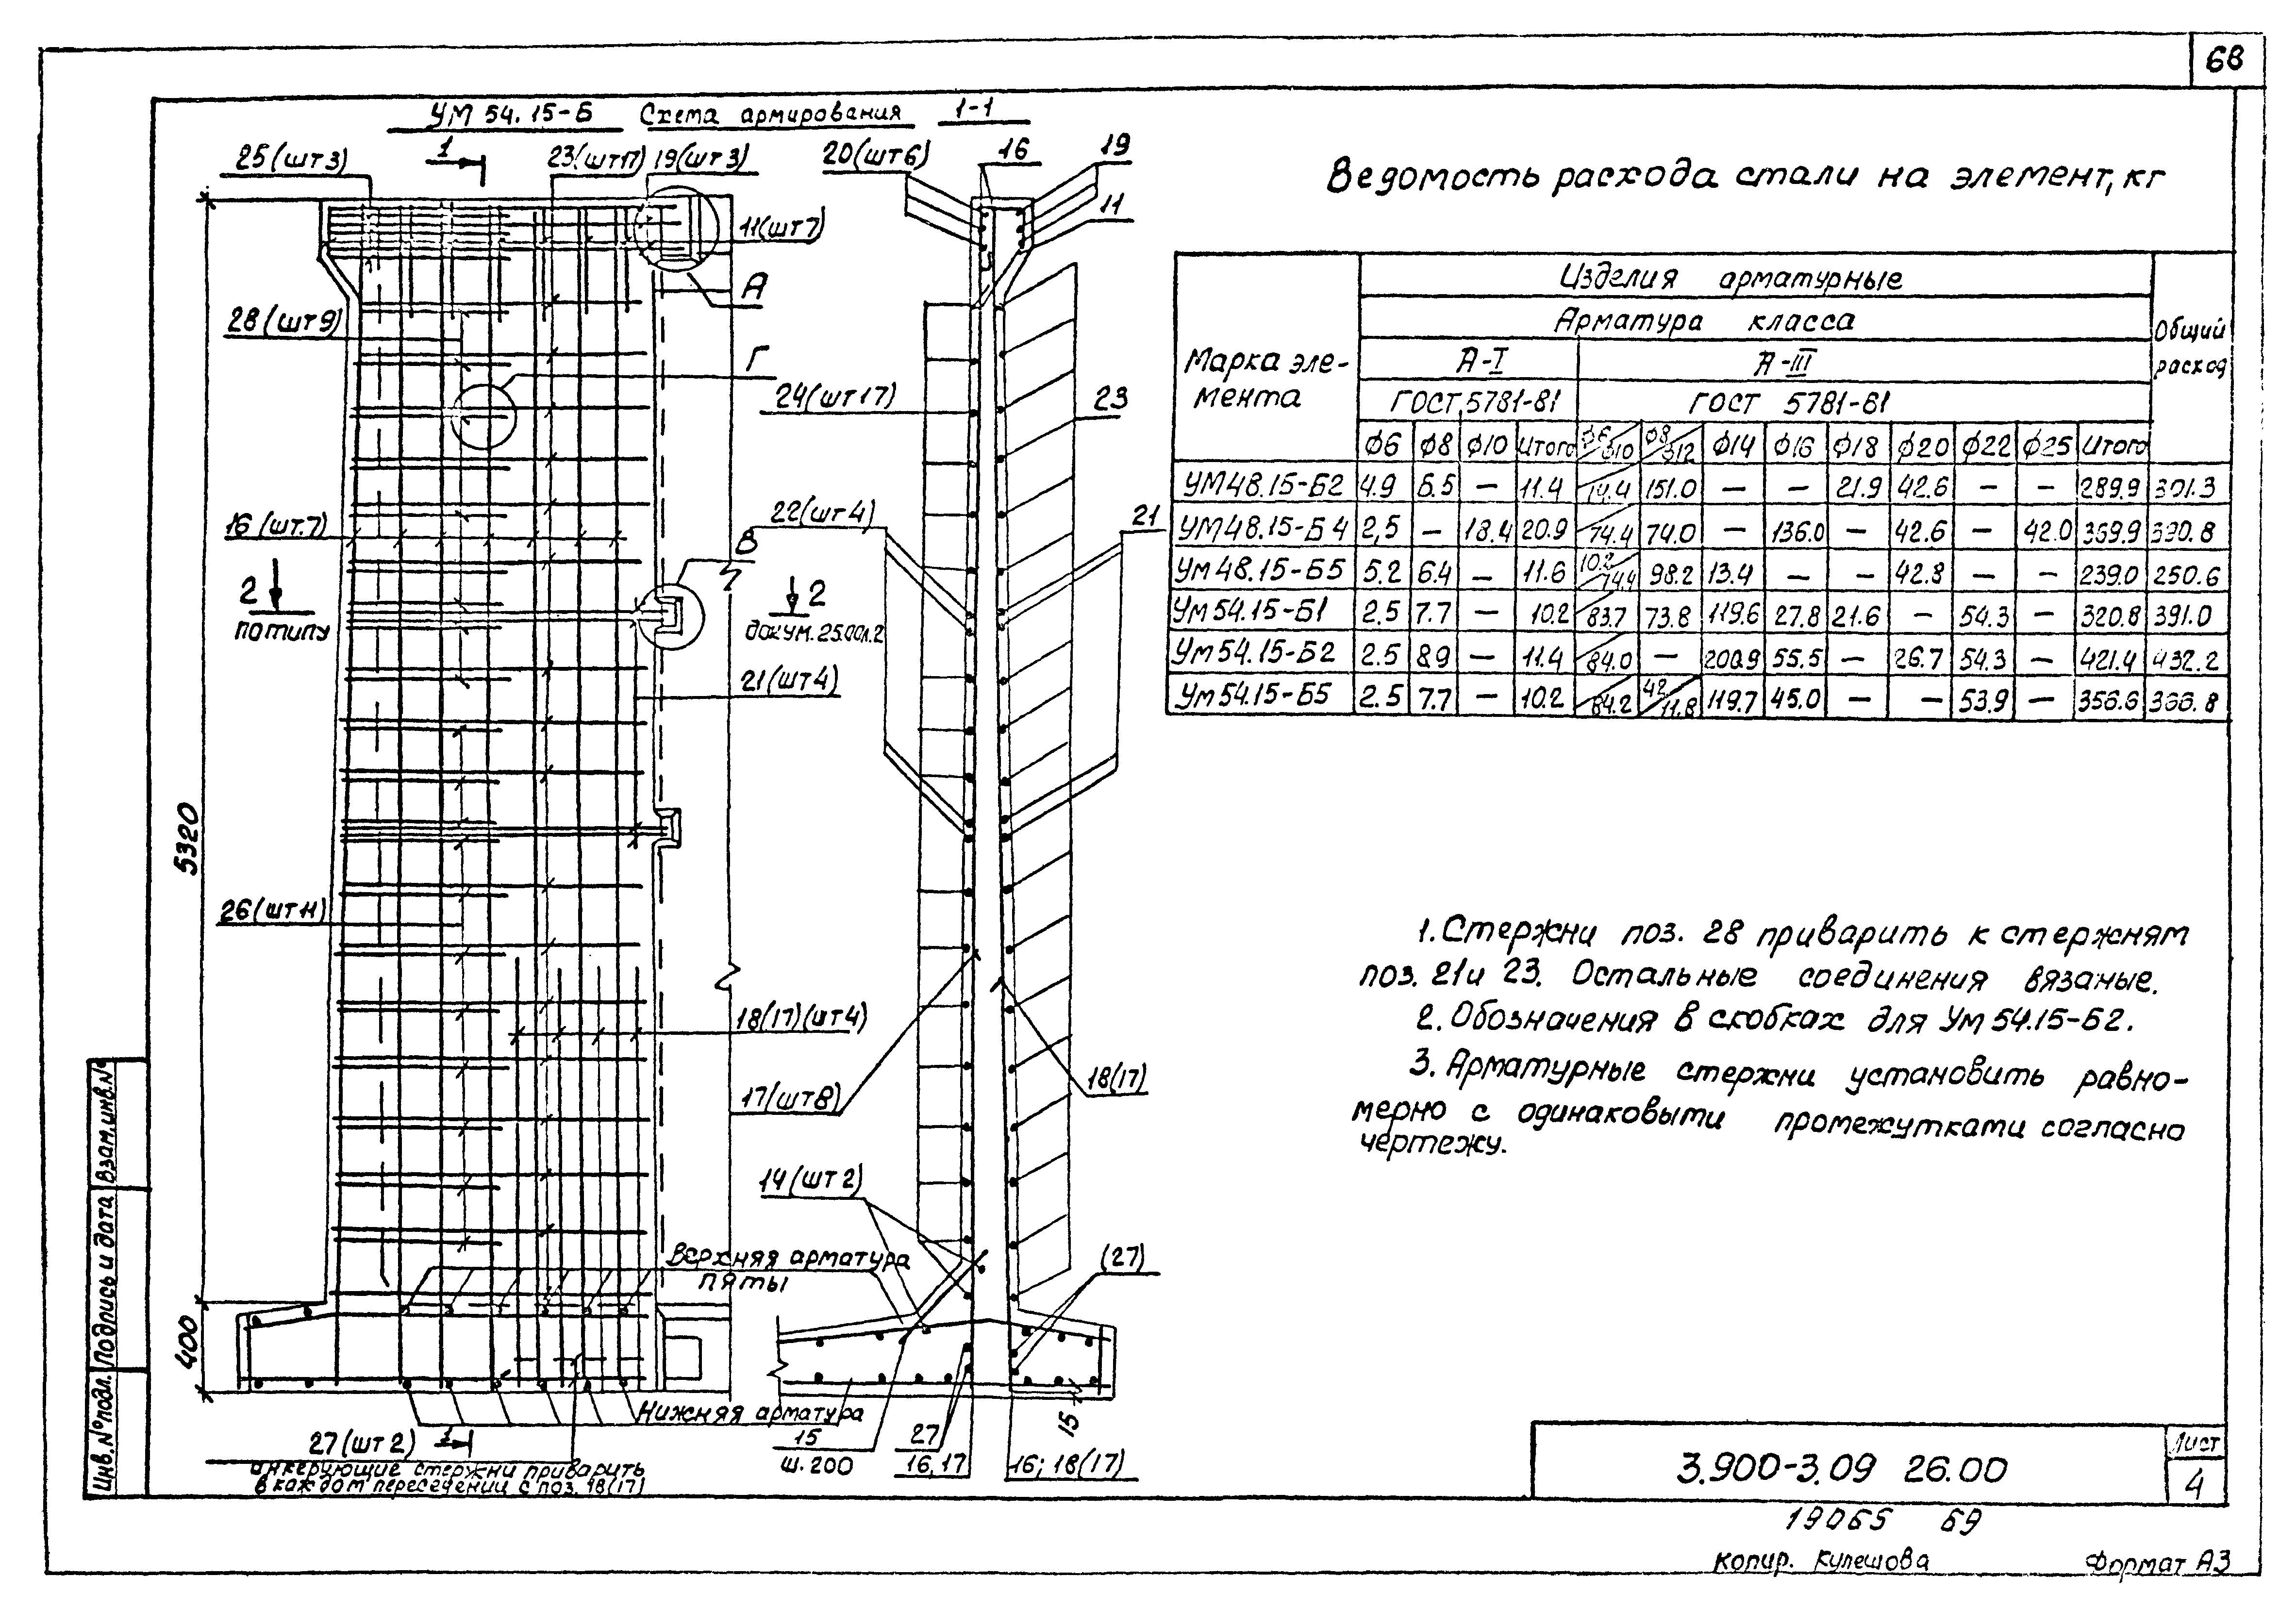 68
УМ 54.15-Б Схема армирования 1-1
25(шт3)
1
23(шт17)
19(шт3)
20(шт6)
16
19
11(шт7)
11
А
28(шт9)
Г
24(шт17)
23
16(шт.7)
22(шт4)
21
В
2
по типу
2
докум. 25.00л.2
21(шт4)
5320
26(шт11)
18(17)(шт4)
17(шт8)
18(17)
14(шт2)
Верхняя арматура
пяты
(27)
400
Нижняя арматура
15
27(шт2)
1
15
ш.200
27
16,17
16; 18(17)
анкерующие стержни приварить
в каждом пересечении с поз. 18(17)
Ведомость расхода стали на элемент, кг
Марка эле-
мента
Изделия арматурные
Арматура класса
Общий
расход
А-I
А-III
ГОСТ 5781-81
ГОСТ 5781-81
ф6 ф8 ф10 Итого ф6/ф10 ф8/ф12 ф14 ф16 ф18 ф20 ф22 ф25 Итого
УМ48.15-Б2 4.9 6.5 — 11.4 /74.4 151.0 — — 21.9 42.6 — — 289.9 301.3
УМ48.15-Б4 2,5 — 18.4 20.9 /74.4 74.0 — 136.0 — 42.6 — 42.0 369.9 390.8
Ум48.15-Б5 5.2 6.4 — 11.6 10.2/74.4 98.2 13.4 — — 42.8 — — 239.0 250.6
Ум54.15-Б1 2.5 7.7 — 10.2 /83.7 73.8 119.6 27.8 21.6 — 54.3 — 320.8 391.0
Ум54.15-Б2 2.5 8.9 — 11.4 /84.0 — 200.9 55.5 — 26.7 54.3 — 421.4 432.2
Ум54.15-Б5 2.5 7.7 — 10.2 /84.2 42/11.8 119.7 45.0 — — 53.9 — 356.6 366.8
1. Стержни поз. 28 приварить к стержням
поз. 21 и 23. Остальные соединения вязаные.
2. Обозначения в скобках для Ум 54.15-Б2.
3. Арматурные стержни установить равно-
мерно с одинаковыми промежутками согласно
чертежу.
Инв.№подл. Подпись и дата Взам.инв.№
3.900-3.09 26.00
Лист
4
19065 69
копир. Кулешова
Формат А3